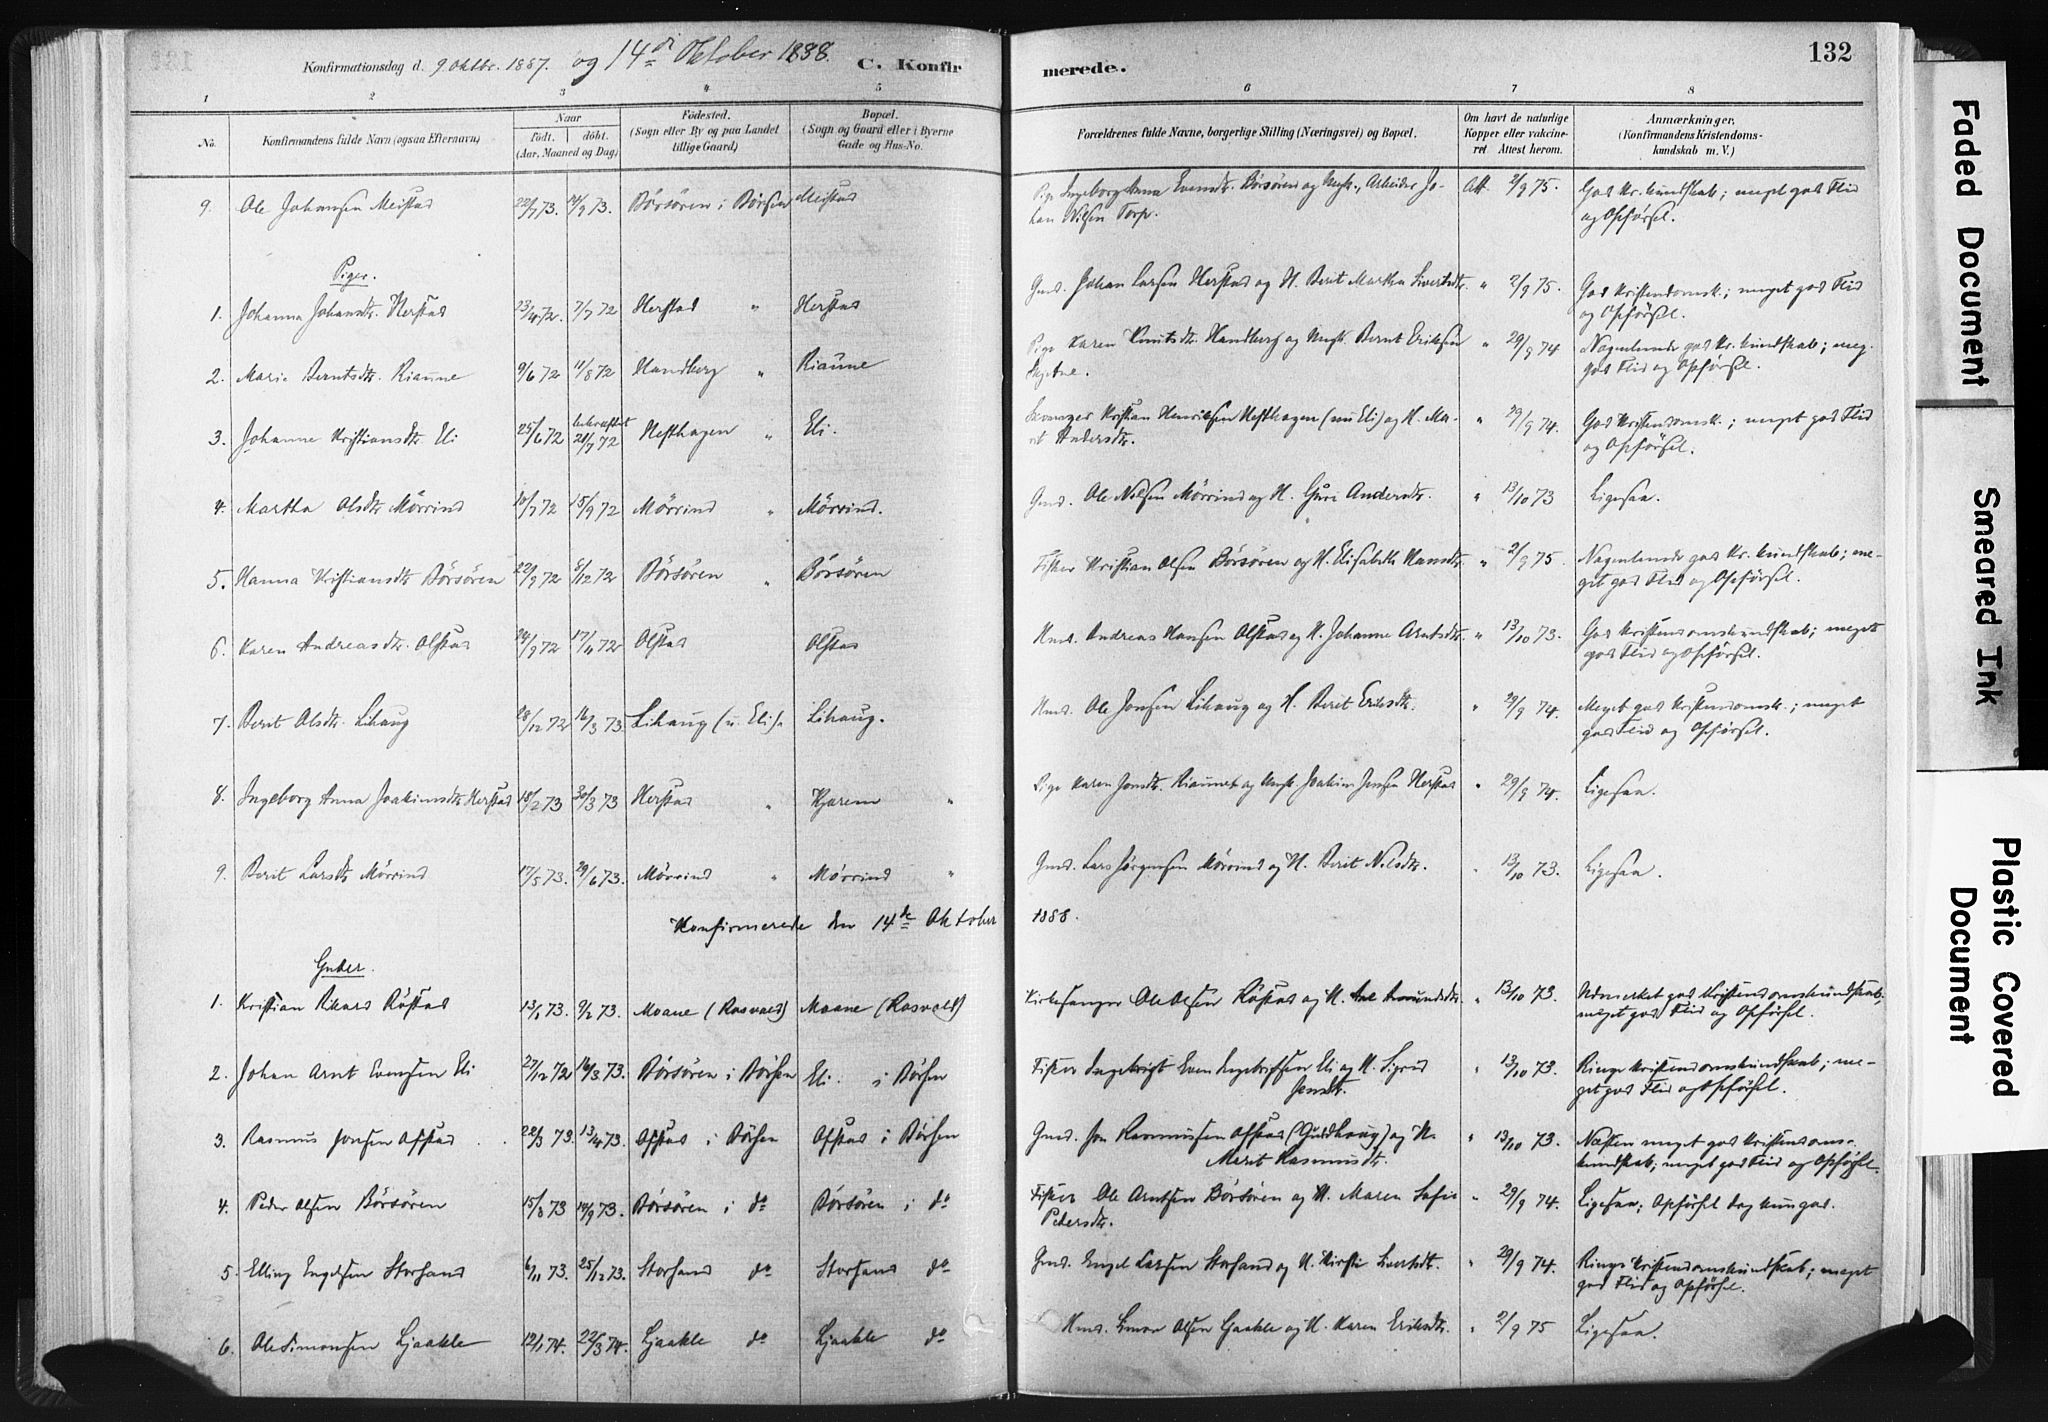 Konfirmationsdag d. 9 Oktbr. 1887. og 14de Oktober 1888. C. Konfirmerede. 132
1 2 3 4 5 6 7 8
No. Konfirmandens fulde Navn (ogsaa Efternavn) Naar født. døbt. (Aar, Maaned og Dag) Fødested. (Sogn eller By og paa Landet tillige Gaard) Bopæl. (Sogn og Gaard eller i Byerne Gade og Hus-No. Forældrenes fulde Navne, borgerlige Stilling (Næringsvei) og Bopæl. Om havt de naturlige Kopper eller vakcineret Attest herom. Anmærkninger, (Konfirmandens Kristendomskundskab m. V.)
9. Ole Johansen Meistad 22/7 73. 14/9 73. Börsören i Börsen Meistad Pige Ingeborg Anna Evensdtr. Börsören og Ungk., Arbeider Johan Nilsen Torp. Att. 2/9 75. God Kr. kundskab; meget god Flid og Opförsel.
Piger.
1. Johanna Johansdtr. Herstad 23/4 72. 7/7 72 Herstad " Herstad Gmd. Johan Larsen Herstad og H. Berit Martha Sivertsdtr. " 2/9 75. God Kristendomsk.; meget god Flid og Opförsel.
2. Marie Berntsdtr. Riaune 9/6 72 11/8 72 Handberg " Riaune Pige Karen Knutsdtr. Handberg og Ungk. Bernt Eriksen " 29/9 74 Nogenlunde god Kr. kundskab; meg. god Flid og Opförsel.
3. Johanne Kristiansdtr. Eli 25/6 72 bekræftet 28/7 72 Hesthagen " Eli. Kristian Henriksen Hesthagen (nu Eli) og H. Marit Andersdtr. " 29/9 74. God Kristendomsk.; meget god Flid og Opförsel.
4. Martha Olsdtr Mörrind 10/7 72 15/9 72 Mörrind " Mörrind. Gmd. Ole Nilsen Mörrind og H. Guri Andersdtr. " 13/10 73 Ligesaa.
5. Hanna Kristiansdtr Börsören 22/9 72 8/12 72 Börsören " Börsören Fisker Kristian Olsen Börsören og H. Elisabeth Hansdtr. " 2/9 75. Nogenlunde god Kr. kundskab; meget god Flid og Opförsel.
6. Karen Andreasdtr. Olstad 24/9 72 17/11 72 Olstad Olstad Hmd. Andreas Hansen Olstad og H. Johanne Arntsdtr. " 13/10 73. God Kristendomskundskab; meget god Flid og Opförsel.
7. Berit Olsdtr. Lihaug 28/12 72 16/3 73. Lihaug (u. Eli). Lihaug. Hmd. Ole Jonsen Lihaug og H. Berit Eriksdtr. " 29/9 74. Meget god Kristendomsk.; meget god Flid og Opförsel.
8. Ingeborg Anna Joakimsdtr Herstad 18/2 73 30/3 73 Herstad " Hjarem " Pige Karen Jonsdtr. Riaunet og Ungk. Joakim Jensen Herstad " 29/9 74. Ligesaa.
9. Berit Larsdtr Mörrind 17/5 73. 29/6 73. Mörrind " Mörrind " Gmd. Lars Jörgensen Mörrind og H. Berit Nilsdtr. " 13/10 73. Ligesaa.
Konfirmerede den 14de Oktober 1888.
Gutter.
1. Kristian Rikard Röstad 13/1 73. 9/2 73. Moane (Rosvald) Moane (Rosvald) Kirkesanger Ole Olsen Röstad og H. Ane Amundsdtr. " 13/10 73. Udmerket god Kristendomskundskab; meget god Flid og Opförsel.
2. Johan Arnt Evensen Eli 27/12 72 16/3 73. Börsören i Börsen Eli. i Börsen Fisker Ingebrigt Even Ingebrigtsen Eli og H. Sigrid Jensdtr. " 13/10 73. Ringe Kristendomskundskab; meget god Flid og Opförsel.
3. Rasmus Jonsen Ofstad 22/3 73. 13/4 73. Ofstad i Börsen Ofstad i Börsen Gmd. Jon Rasmussen Ofstad (Guldhaug) og H. Marit Rasmusdtr. " 13/10 73. Næsten meget god Kristendomskundskab; meget god Flid og Opförsel.
4. Peder Olsen Börsören 15/8 73 14/9 73. Börsören i do Börsören i do Fisker Ole Arntsen Börsören og H. Maren Sofie Pedersdtr. " 29/9 74. Ligesaa; Opförsel dog kun god.
5. Elling Engelsen Storsand 6/11 73. 25/12 73. Storsand do Storsand do Gmd. Engel Larsen Storsand og H. Kirsti Sivertsdtr. " 29/9 74. Ringe Kristendomskundskab; meget god Flid og Opförsel.
6. Ole Simonsen Ljaakle 12/1 74. 22/3 74. Ljaakle do Ljaakle do Hmd. Simon Olsen Ljaakle og H. Karen Eriksdtr. " 2/9 75 Ligesaa.
Faded Document
Smeared Ink
Plastic Covered Document